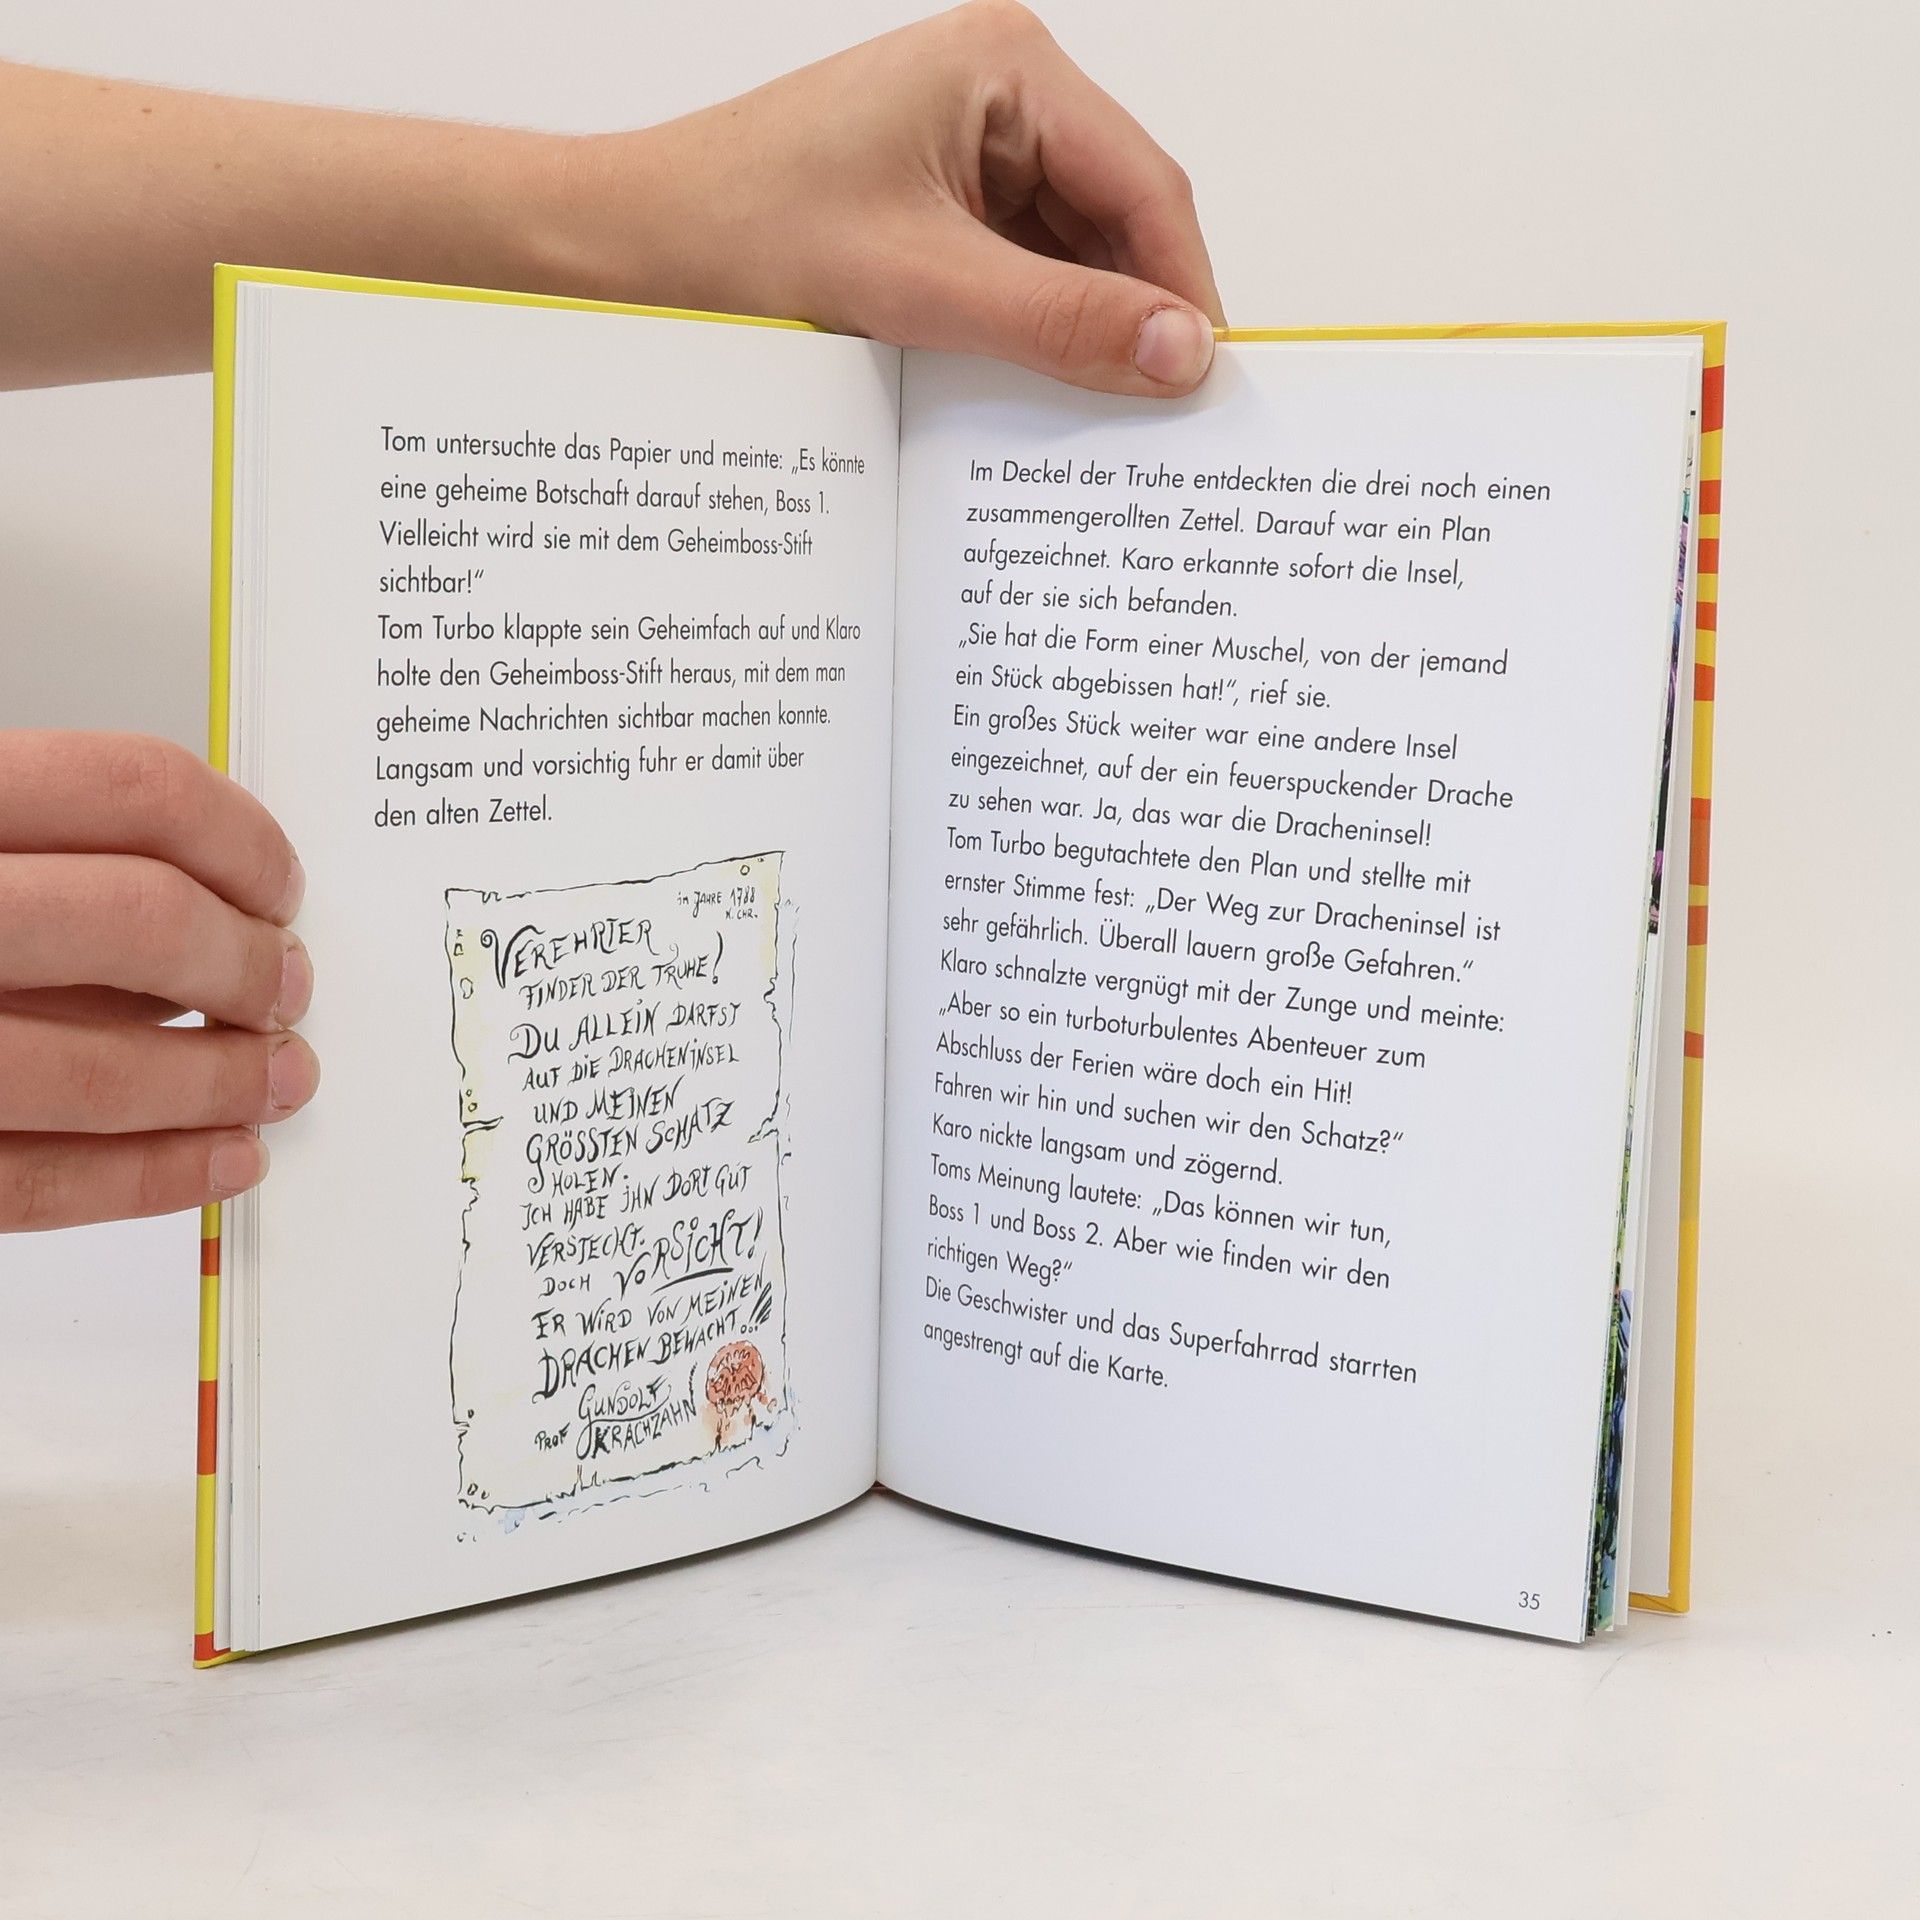 Tom untersuchte das Papier und meinte: „Es könnte
eine geheime Botschaft darauf stehen, Boss 1.
Vielleicht wird sie mit dem Geheimboss-Stift
sichtbar!“
Tom Turbo klappte sein Geheimfach auf und Klaro
holte den Geheimboss-Stift heraus, mit dem man
geheime Nachrichten sichtbar machen konnte.
Langsam und vorsichtig fuhr er damit über
den alten Zettel.
im JAHRE 1788
N. CHR.
VEREHRTER
FINDER DER TRUHE!
DU ALLEIN DARFST
AUF DIE DRACHENINSEL
UND MEINEN
GRÖSSTEN SCHATZ
HOLEN.
ICH HABE IHN DORT GUT
VERSTECKT.
DOCH VORSICHT!
ER WIRD VON MEINEN
DRACHEN BEWACHT..!!!
GUNDOLF
PROF KRACHZAHN
Im Deckel der Truhe entdeckten die drei noch einen
zusammengerollten Zettel. Darauf war ein Plan
aufgezeichnet. Karo erkannte sofort die Insel,
auf der sie sich befanden.
„Sie hat die Form einer Muschel, von der jemand
ein Stück abgebissen hat!“, rief sie.
Ein großes Stück weiter war eine andere Insel
eingezeichnet, auf der ein feuerspuckender Drache
zu sehen war. Ja, das war die Dracheninsel!
Tom Turbo begutachtete den Plan und stellte mit
ernster Stimme fest: „Der Weg zur Dracheninsel ist
sehr gefährlich. Überall lauern große Gefahren.“
Klaro schnalzte vergnügt mit der Zunge und meinte:
„Aber so ein turboturbulentes Abenteuer zum
Abschluss der Ferien wäre doch ein Hit!
Fahren wir hin und suchen wir den Schatz?“
Karo nickte langsam und zögernd.
Toms Meinung lautete: „Das können wir tun,
Boss 1 und Boss 2. Aber wie finden wir den
richtigen Weg?“
Die Geschwister und das Superfahrrad starrten
angestrengt auf die Karte.
35